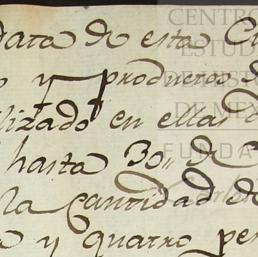 data de esta Cu
y productos d
lizado en ellas d
hasta 30,, de
la cantidad de
y quatro pe
CENTRO
ESTUD
DE MEX
FUNDA